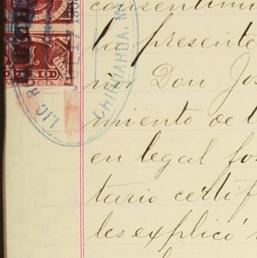 consentimi
la presente
nio Don Jos
miento de l
en legal for
tario certif
les explicó
LIC. R
CHIHUAHUA. M